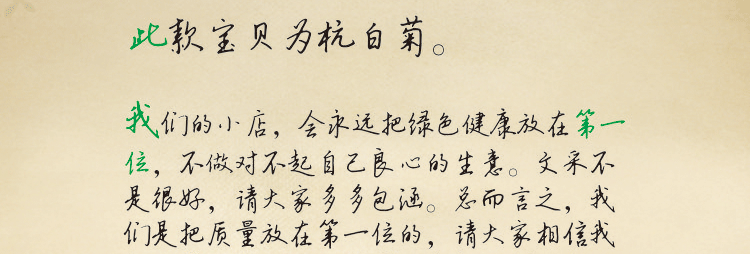 此款宝贝为杭白菊。
我们的小店，会永远把绿色健康放在第一
位，不做对不起自己良心的生意。文采不
是很好，请大家多多包涵。总而言之，我
们是把质量放在第一位的，请大家相信我